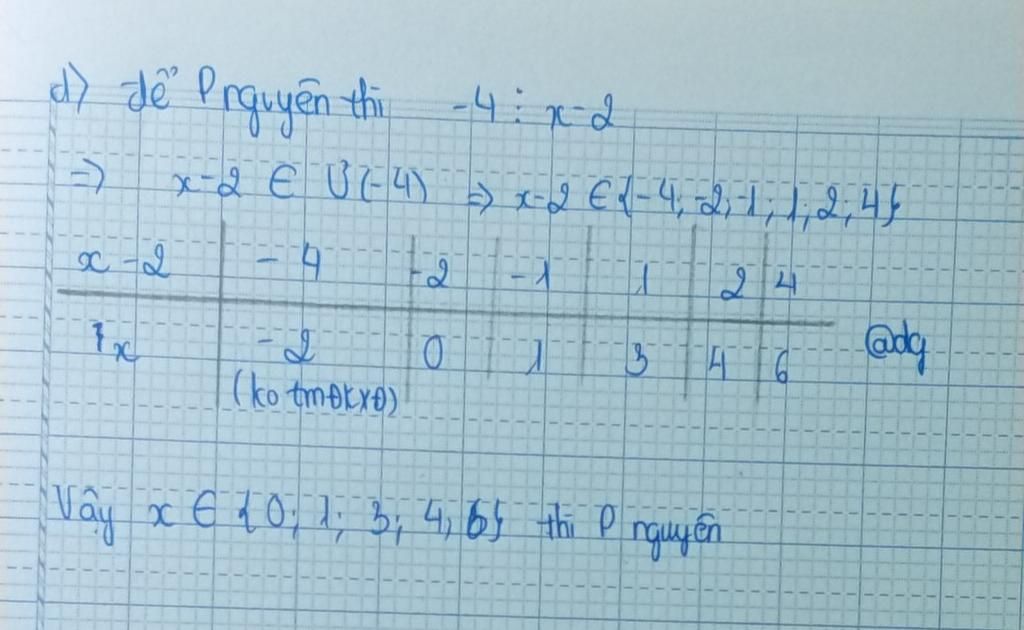 d) để P nguyên thì -4 ⋮ x-2
=> x-2 ∈ Ư(-4) => x-2 ∈ {-4; -2; -1; 1; 2; 4}
x-2 -4 -2 -1 1 2 4
x -2 0 1 3 4 6 @dg
(ko tmĐKXĐ)
Vậy x ∈ {0; 1; 3; 4; 6} thì P nguyên